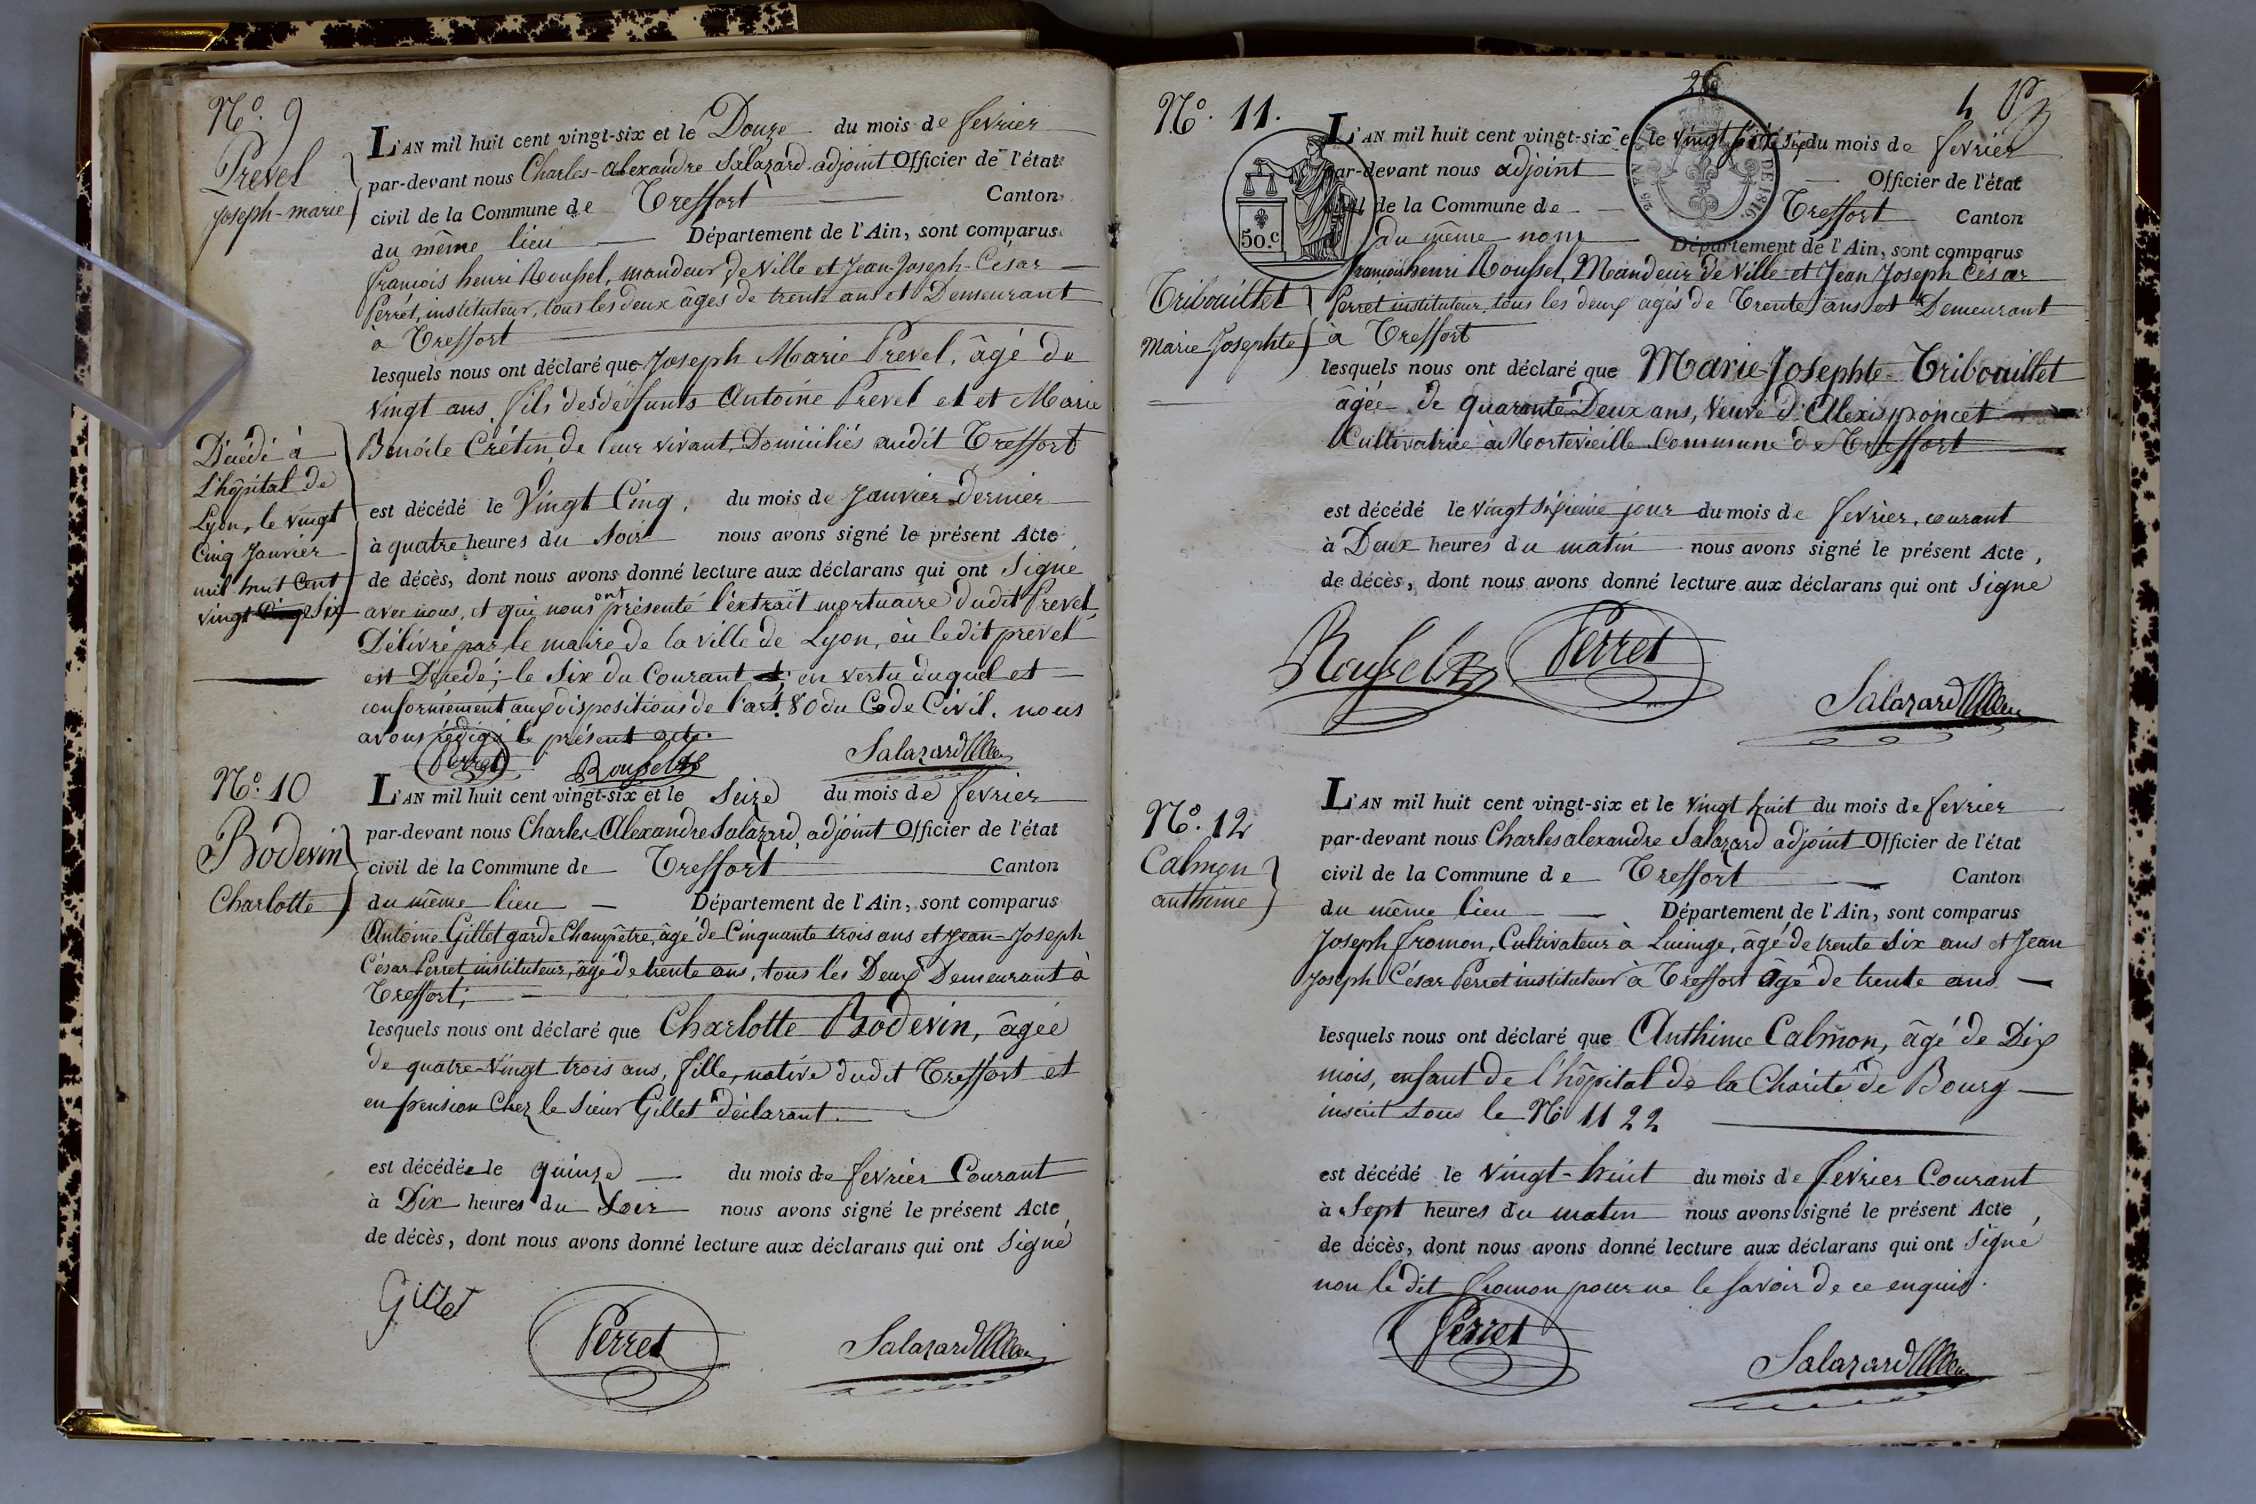 N.º 9
Prevel
Joseph-marie
Décédé à
L'hôpital de
Lyon, le vingt
Cinq Janvier
mil huit Cent
vingt Six
L'AN mil huit cent vingt-six et le Douze du mois de fevrier
par-devant nous Charles-alexandre Salazard adjoint Officier de l'état
civil de la Commune de Treffort Canton
du même lieu Département de l'Ain, sont comparus
françois henri Roussel, mandeur de Ville et Jean-Joseph-César
Perret, instituteur, tous les deux âgés de trente ans et Demeurant
à Treffort
lesquels nous ont déclaré que Joseph Marie Prevel, âgé de
vingt ans, fils des déffunts Antoine Prevel et et Marie
Benoite Crétin, de leur vivant Domiciliés audit Treffort
est décédé le Vingt Cinq, du mois de Janvier Dernier
à quatre heures du Soir nous avons signé le présent Acte
de décès, dont nous avons donné lecture aux déclarans qui ont Signé
avec nous, et qui nous ont présenté l'extrait mortuaire dudit Prevel,
Délivré par le maire de la ville de Lyon, où ledit prevel
est Décédé; le Six du Courant en vertu duquel et
conformément aux dispositions de l'art. 80 du Code Civil, nous
avons rédigé le présent acte.
Perret Roussel Salazard
N.º 10
Bodevin
Charlotte
L'AN mil huit cent vingt-six et le Seize du mois de fevrier
par-devant nous Charles-Alexandre Salazard, adjoint Officier de l'état
civil de la Commune de Treffort Canton
du même lieu Département de l'Ain, sont comparus
Antoine Gillet garde Champêtre, âgé de Cinquante trois ans et Jean-Joseph
César Perret instituteur, âgé de trente ans, tous les Deux Demeurant à
Treffort;
lesquels nous ont déclaré que Charlotte Bodevin, âgée
de quatre-Vingt trois ans, fille, native dudit Treffort et
en pension Chez le Sieur Gillet déclarant.
est décédée le quinze du mois de fevrier Courant
à Dix heures du Soir nous avons signé le présent Acte
de décès, dont nous avons donné lecture aux déclarans qui ont Signé
Gillet
Perret
Salazard
26
4
N.º 11.
50.C
DE 1816.
Tribouillet
Marie Josephte
L'AN mil huit cent vingt-six et le vingt Six du mois de fevrier
par-devant nous adjoint Officier de l'état
civil de la Commune de Treffort Canton
du même nom Département de l'Ain, sont comparus
françois henri Roussel, Mandeur de Ville et Jean Joseph César
Perret instituteur tous les deux agés de Trente ans et Demeurant
à Treffort
lesquels nous ont déclaré que Marie-Josephte-Tribouillet
âgée de quarante Deux ans, veuve d'Alexis poncet
Cultivatrice à Mortevieille Commune de Treffort
est décédé le vingt Sixieme jour du mois de fevrier, courant
à Deux heures du matin nous avons signé le présent Acte,
de décès, dont nous avons donné lecture aux déclarans qui ont Signé
Roussel Perret
Salazard
N.º 12
Calmon
anthime
L'AN mil huit cent vingt-six et le vingt huit du mois de fevrier
par-devant nous Charles alexandre Salazard adjoint Officier de l'état
civil de la Commune de Treffort Canton
du même lieu Département de l'Ain, sont comparus
Joseph fromon, Cultivateur à Lucinge, âgé de trente Six ans et Jean
Joseph César Perret instituteur à Treffort Agé de trente ans
lesquels nous ont déclaré que Anthime Calmon, âgé de Dix
mois, enfant de l'hôpital de la Charité de Bourg
inscrit Sous le N.º 1122
est décédé le vingt-huit du mois de fevrier Courant
à Sept heures du matin nous avons signé le présent Acte,
de décès, dont nous avons donné lecture aux déclarans qui ont Signé
non le dit fromon pour ne le Savoir de ce enquis.
Perret
Salazard